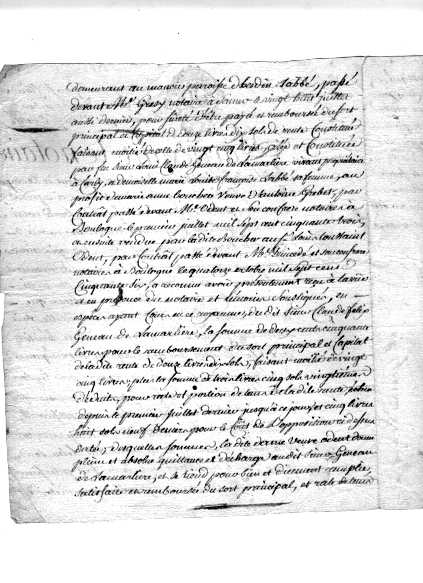 demeurant au manoir paroisse d'hesdin L'abbé, passé
devant Me. Gresy notaire à Samer le vingt huit juillet
année dernière, pour sûreté d'être payé et remboursée du sort
principal et de douze livres dix sols de rente Constituée
faisant moitié de celle de vingt cinq livres, créée et Constituée
par feu Louis Claude Geneau de Lamarlière vivant propriétaire
à et demoiselle marie Louise françoise Labbé sa femme, au
profit de marie anne Bouchor Veuve d'Antoine par
Contrat passé devant Me. Odent et Son confrère notaires à
Boulogne le premier juillet mil Sept cent cinquante trois,
ensuite vendue par la dite Bouchor au Sr. Louis Constant
Odent, par Contrat passé devant Me. et son confrère
notaires à Boulogne le quatorze octobre mil sept cent
Cinquante six, a reconnu avoir présentement reçu à la vue
et en présence du notaire et témoins Soussignés, en
espèces ayant Cours en ce royaume, du dit Sieur Claude felix
Geneau de Lamarlière, la somme de deux cents cinquante
livres pour le remboursement du sort principal et Capital
de la dite rente de douze livres dix sols, faisant moitié de vingt
cinq livres; plus la somme de trois livres cinq sols vingtièmes
déduits, pour rate et portion de tems de la dite rente
depuis le premier juillet dernier jusqu'à ce jour, et cinq livres
huit sols neuf deniers pour le Coût de L'opposition ci dessus
datée; desquelles sommes, la dite dame Veuve Odent donne
pleine et absolue quittance et décharge au dit Sieur Geneau
de Lamarlière, et se tient pour bien et duement remplie,
satisfaite et remboursée du sort principal, et rate de tems